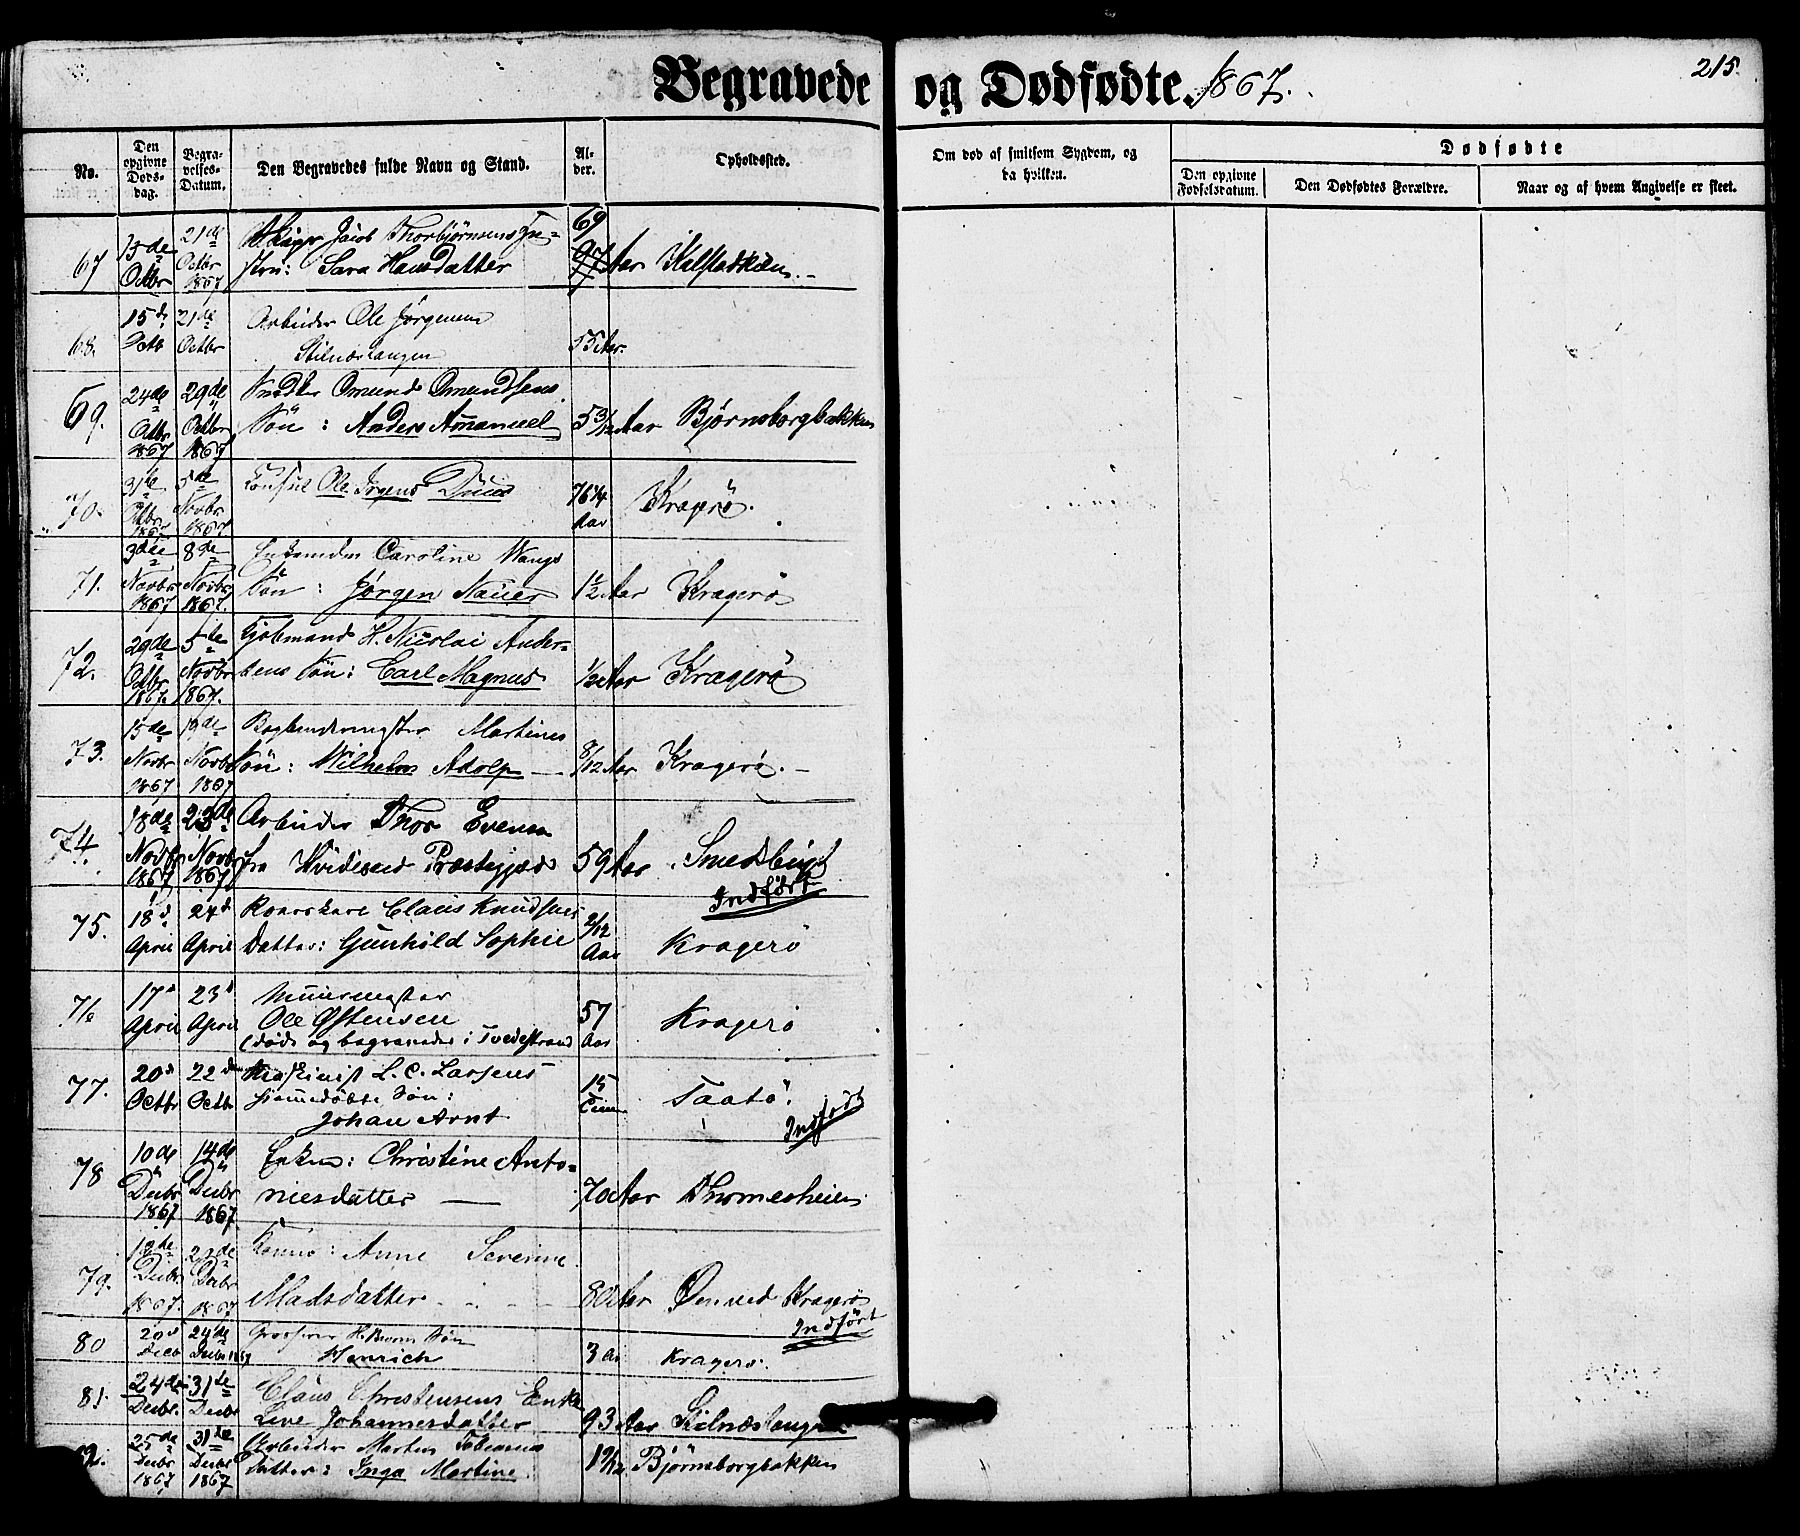 Begravede og Dødfødte. 1867.
215.
No.
Den opgivne Døds-dag.
Begra-velses-Datum.
Den Begravedes fulde Navn og Stand.
Al-der.
Opholdssted.
Om død af smitsom Sygdom, og da hvilken.
Dødfødte
Den opgivne Fødselsdatum.
Den Dødfødtes Forældre.
Naar og af hvem Angivelse er skeet.
67 15de Octbr 21de Octbr 1867 Jacob Thorbjørnsens Hu-
stru: Sara Hansdatter 69 97 Aar Kalstadkilen.
68. 15de Octb 21de Octbr Arbeider Ole Jørgensen
Stilnæstangen 55 Aar.
69. 24de Octbr 1867 29de Octbr 1867 Omund Omundsens
Søn: Anders Amanuel 5 3/12 Aar Bjørnsborgbakken
70. 31te Octbr 1867 5de Novbr 1867 Consul Ole Irgens Dues 76 1/4 Aar Kragerø.
71. 3die Novbr 1867 8de Novbr 1867. Caroline Wangs
Søn: Jørgen Nauer 1 1/2 Aar Kragerø
72. 29de Octbr 1867. 5te Novbr 1867. H. Nicolai Ander-
sens Søn: Carl Magnus 1/2 Aar Kragerø
73. 15de Novbr 1867 19de Novbr 1867 Bogbindermester Martines
Søn: Wilhelm Adolp 8/12 Aar Kragerø.
74. 18de Novbr 1867 23de Novbr 1867 Arbeider Thor Evensen
fra Hvidesed Præstegjæld 59 Aar Smedsbugt
Indført
75. 18d April 24d April Claus Knudsens
Datter: Gunhild Sophie 2/12 Aar Kragerø
76 17d April 23d April Muurmester
Ole Østensen
(død og begravedes i Tvedestrand 57 Aar Kragerø
77. 20d Octbr 22d Octbr Maskinist L. C. Larsens
hjemmedøbte Søn:
Johan Arnt 15 Timer Taatø.
Indført
78 10de Decbr 1867 14de Decbr 1867. Enken: Christine Anto-
niesdatter 70 Aar Thomesheien
79. Decbr 1867. Decbr 1867 Kone: Anne Severine
Madsdatter 80 Aar Øen ved Kragerø
Indført
80 20d Decb 24de Decbr 1867 Grosserer H. Biørns Søn
Henrich 3 Aar Kragerø.
81. 24de Decbr. 31te Decbr Claus Christensens Enke
Live Johannesdatter 93 Aar Stilnæstangen
82. 25de Decbr 1867 31te Decbr 1867 Arbeider Martin Tobiasens
Datter: Inga Martine. Bjørnsborgbakken